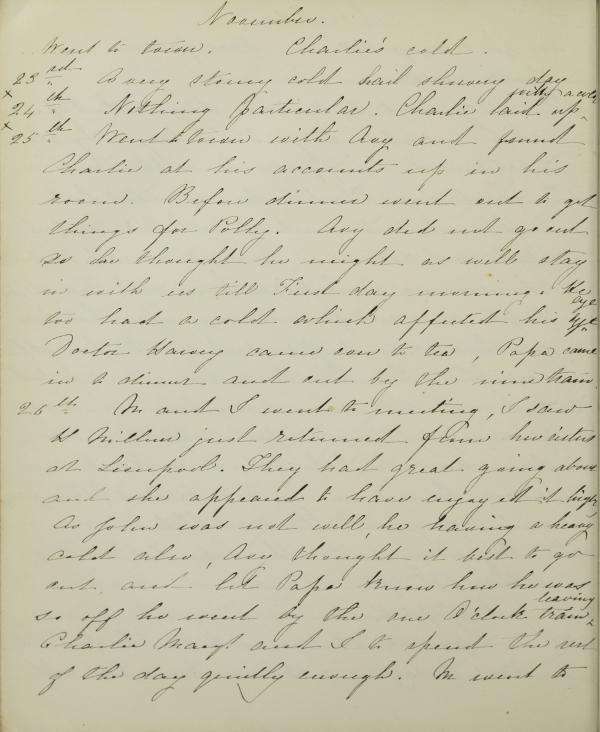 November.
Went to town. Charlie's cold.
23rd A very stormy cold hail showery day
x 24th Nothing particular. Charlie laid up with a cold
x 25th Went to town with Avy and found
Charlie at his accounts up in his
room. Before dinner went out to get
things for Polly. Avy did not go out
as he thought he might as well stay
in with us till First day morning. He
too had a cold which affected his eye
Doctor Harvey came over to tea, Papa came
in to dinner and out by the nine train.
26th M and I went to meeting, I saw
H Milner just returned from her sisters
at Liverpool. They had great going about
and she appeared to have enjoyed it
As John was not well, he having a heavy
cold also, Avy thought it best to go
out and let Papa know how he was
so off he went by the one O'clock train leaving
Charlie Mary and I to spend the rest
of the day quietly enough. M went to